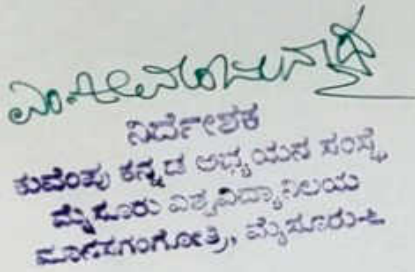 ನಿರ್ದೇಶಕ
ಕುವೆಂಪು ಕನ್ನಡ ಅಧ್ಯಯನ ಸಂಸ್ಥೆ,
ಮೈಸೂರು ವಿಶ್ವವಿದ್ಯಾನಿಲಯ
ಮಾನಸಗಂಗೋತ್ರಿ, ಮೈಸೂರು-೬